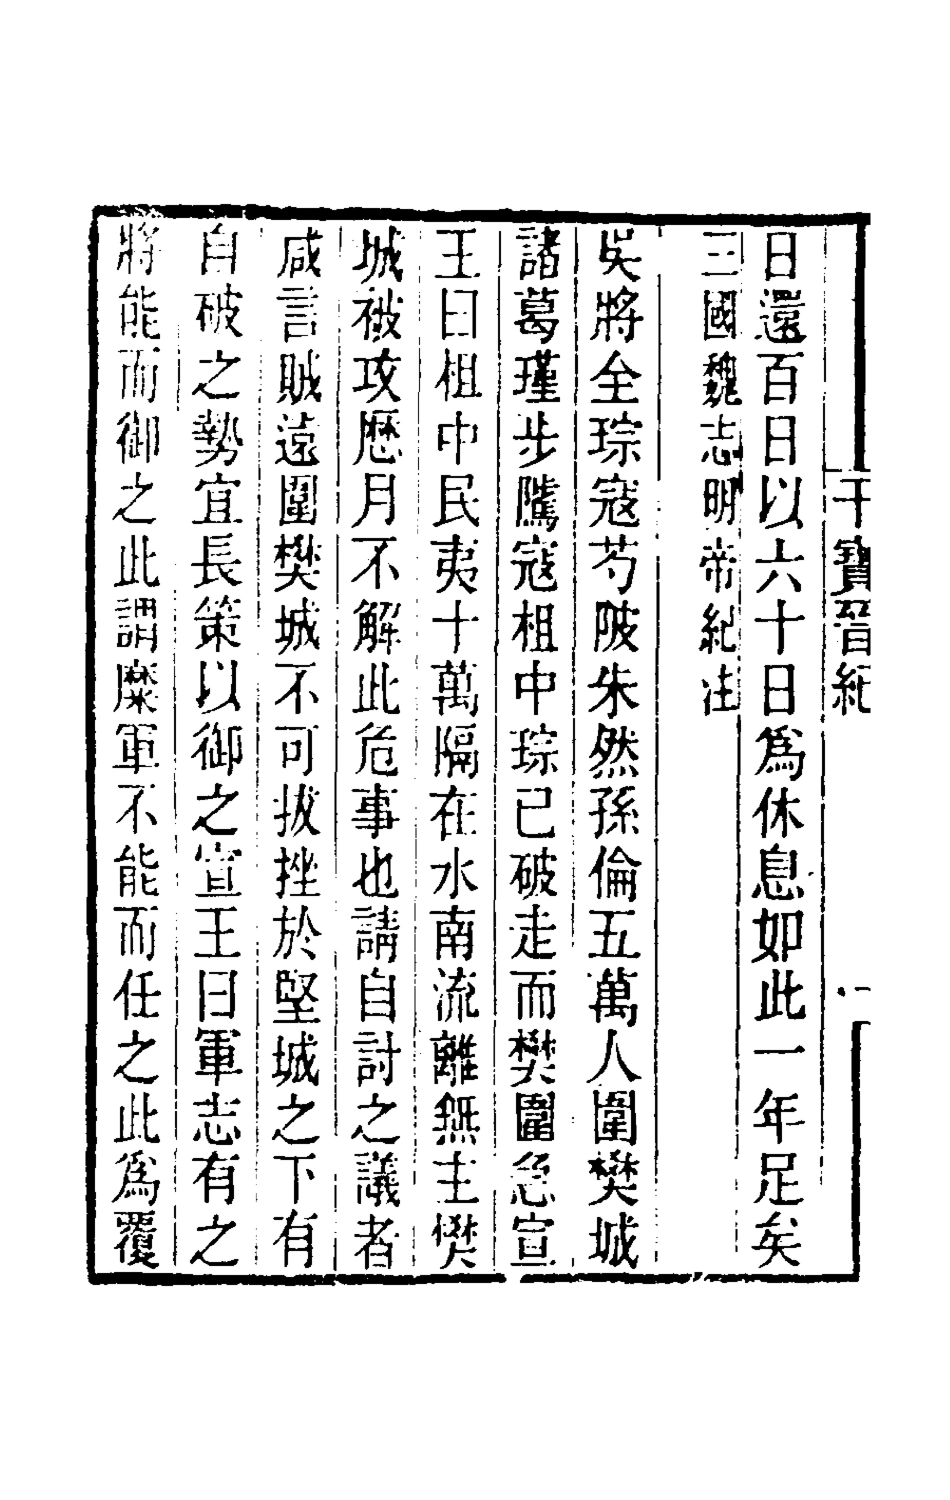 干寶晉紀
一
日還百日以六十日爲休息如此一年足矣
三國魏志明帝紀注
吳將全琮寇芍陂朱然孫倫五萬人圍樊城
諸葛瑾步騭寇柤中琮已破走而樊圍急宣
王曰柤中民夷十萬隔在水南流離無主樊
城被攻歷月不解此危事也請自討之議者
咸言賊遠圍樊城不可拔挫於堅城之下有
自破之勢宜長策以御之宣王曰軍志有之
將能而御之此謂縻軍不能而任之此爲覆